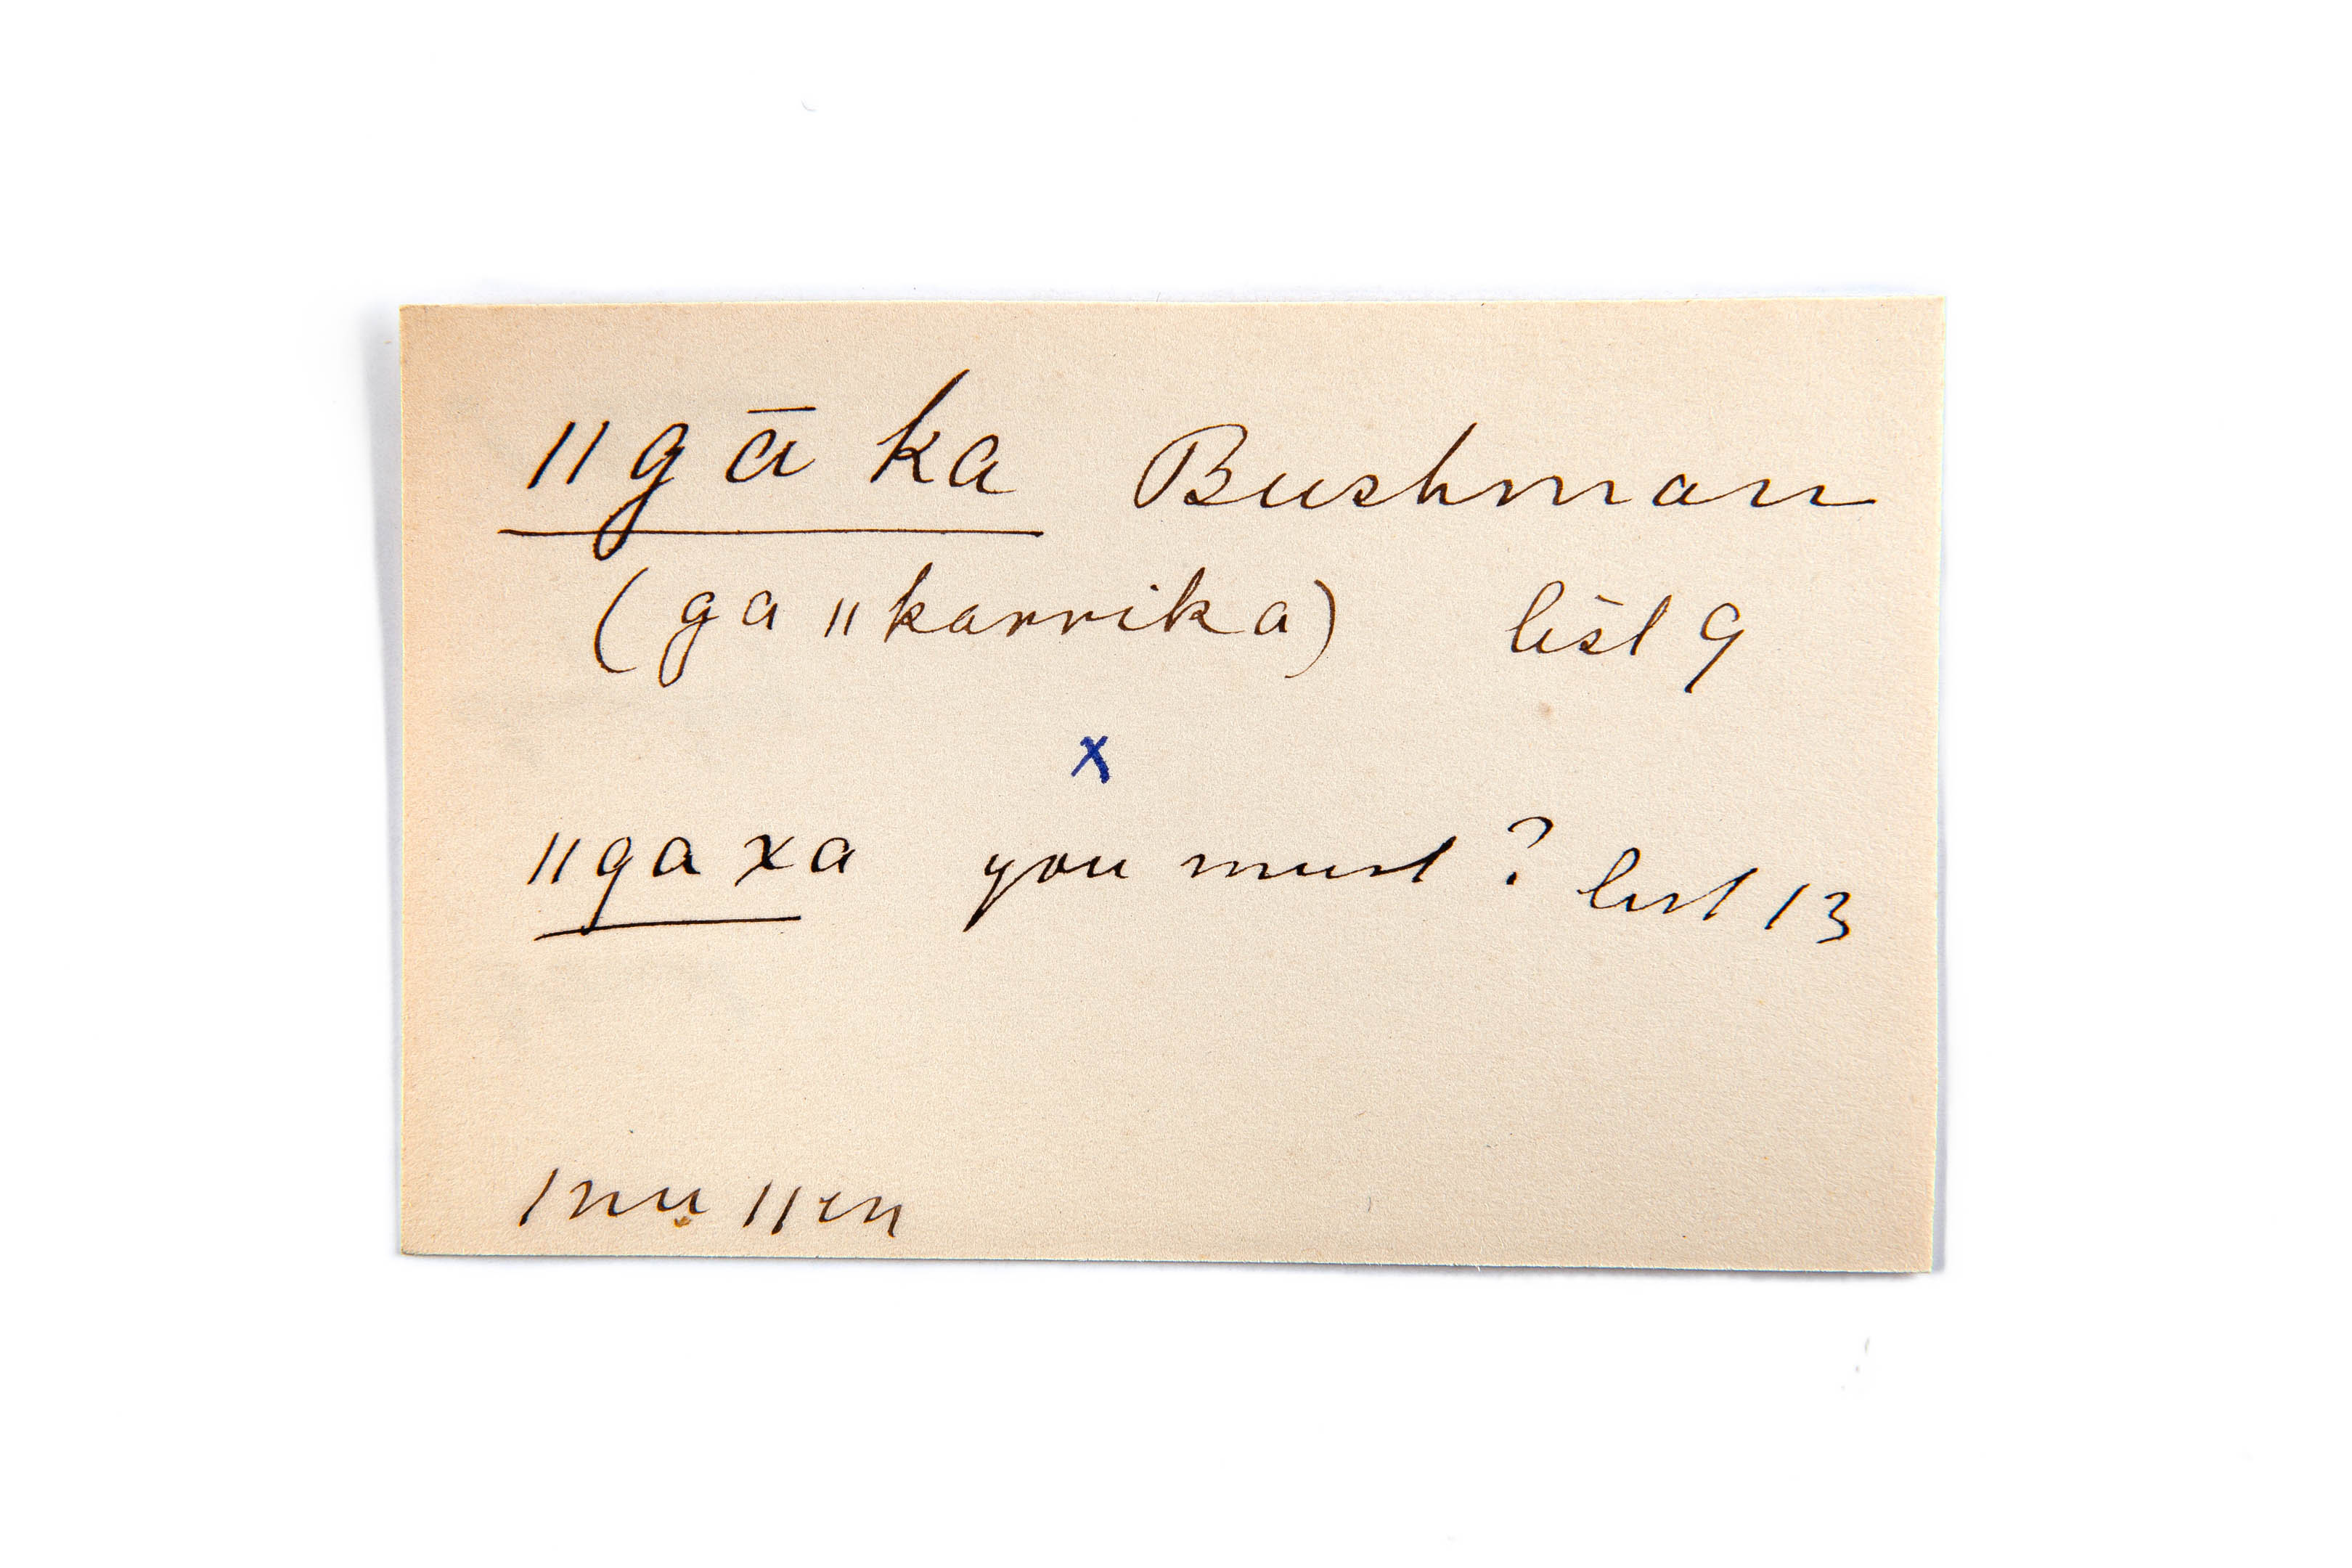 ǁgā ka Bushman
(ga ǁkarrika) list 9
x
ǁga xa you must ? list 13
ǀnu ǁen